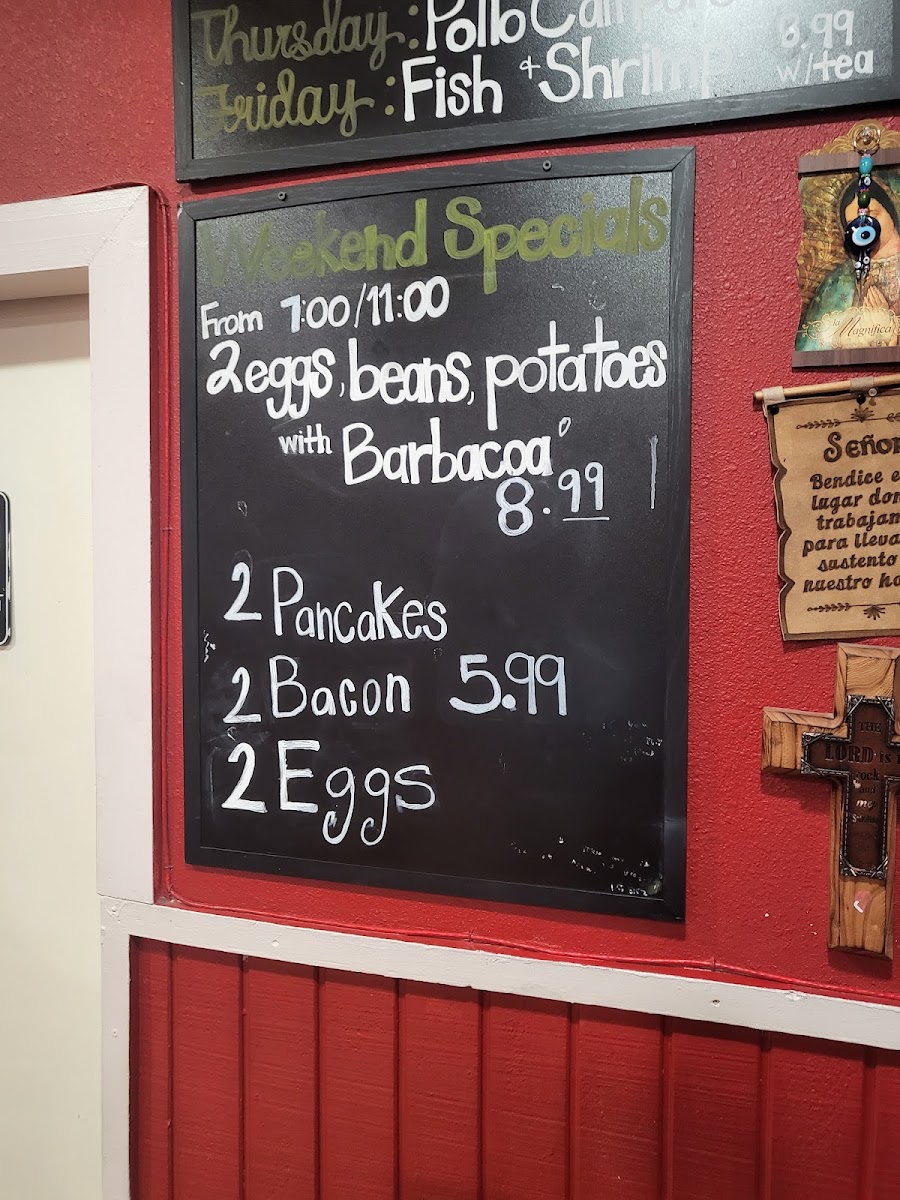 Thursday: Pollo
8.99
w/tea
Friday: Fish + Shrimp
Weekend Specials
From 7:00/11:00
2 eggs, beans, potatoes
with Barbacoa
8.99
2 Pancakes
2 Bacon 5.99
2 Eggs
la Magnífica
Señor
Bendice e
lugar don
trabajam
para lleva
sustento
nuestro ho
THE
LORD is
rock
and
my